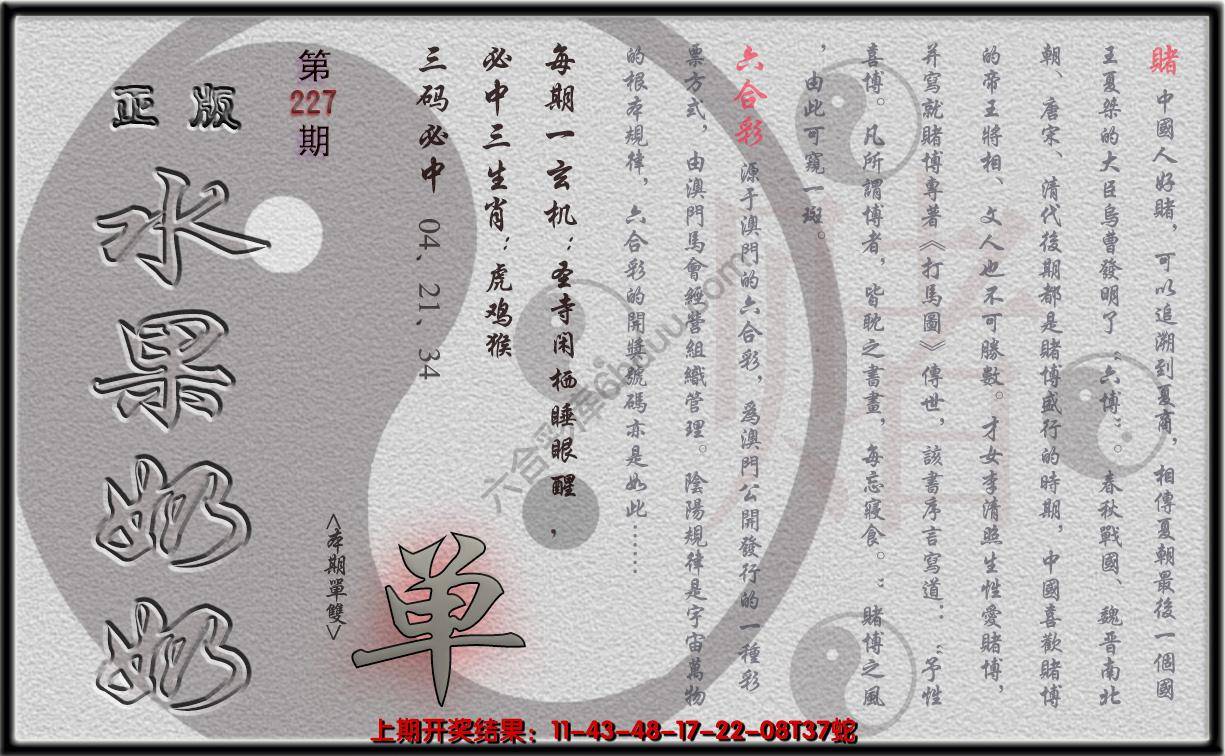 賭 中國人好賭，可以追溯到夏商，相傳夏朝最後一個國
王夏桀的大臣烏曹發明了“六博”。春秋戰國、魏晋南北
朝、唐宋、清代後期都是賭博盛行的時期，中國喜歡賭博
的帝王將相、文人也不可勝數。才女李清照生性愛賭博，
并寫就賭博專著《打馬圖》傳世，該書序言寫道：“予性
喜博。凡所謂博者，皆耽之書畫，每忘寢食。”賭博之風
，由此可窺一斑。
六合彩 源于澳門的六合彩，爲澳門公開發行的一種彩
票方式，由澳門馬會經營組織管理。陰陽規律是宇宙萬物
的根本規律，六合彩的開獎號碼亦是如此……
每期一玄机：圣寺闲栖睡眼醒，
必中三生肖：虎鸡猴
三码必中 04．21．34
第
227
期
正版
水果奶奶
<本期單雙>
单
六合彩库6hduu.com
上期开奖结果：11-43-48-17-22-08T37蛇